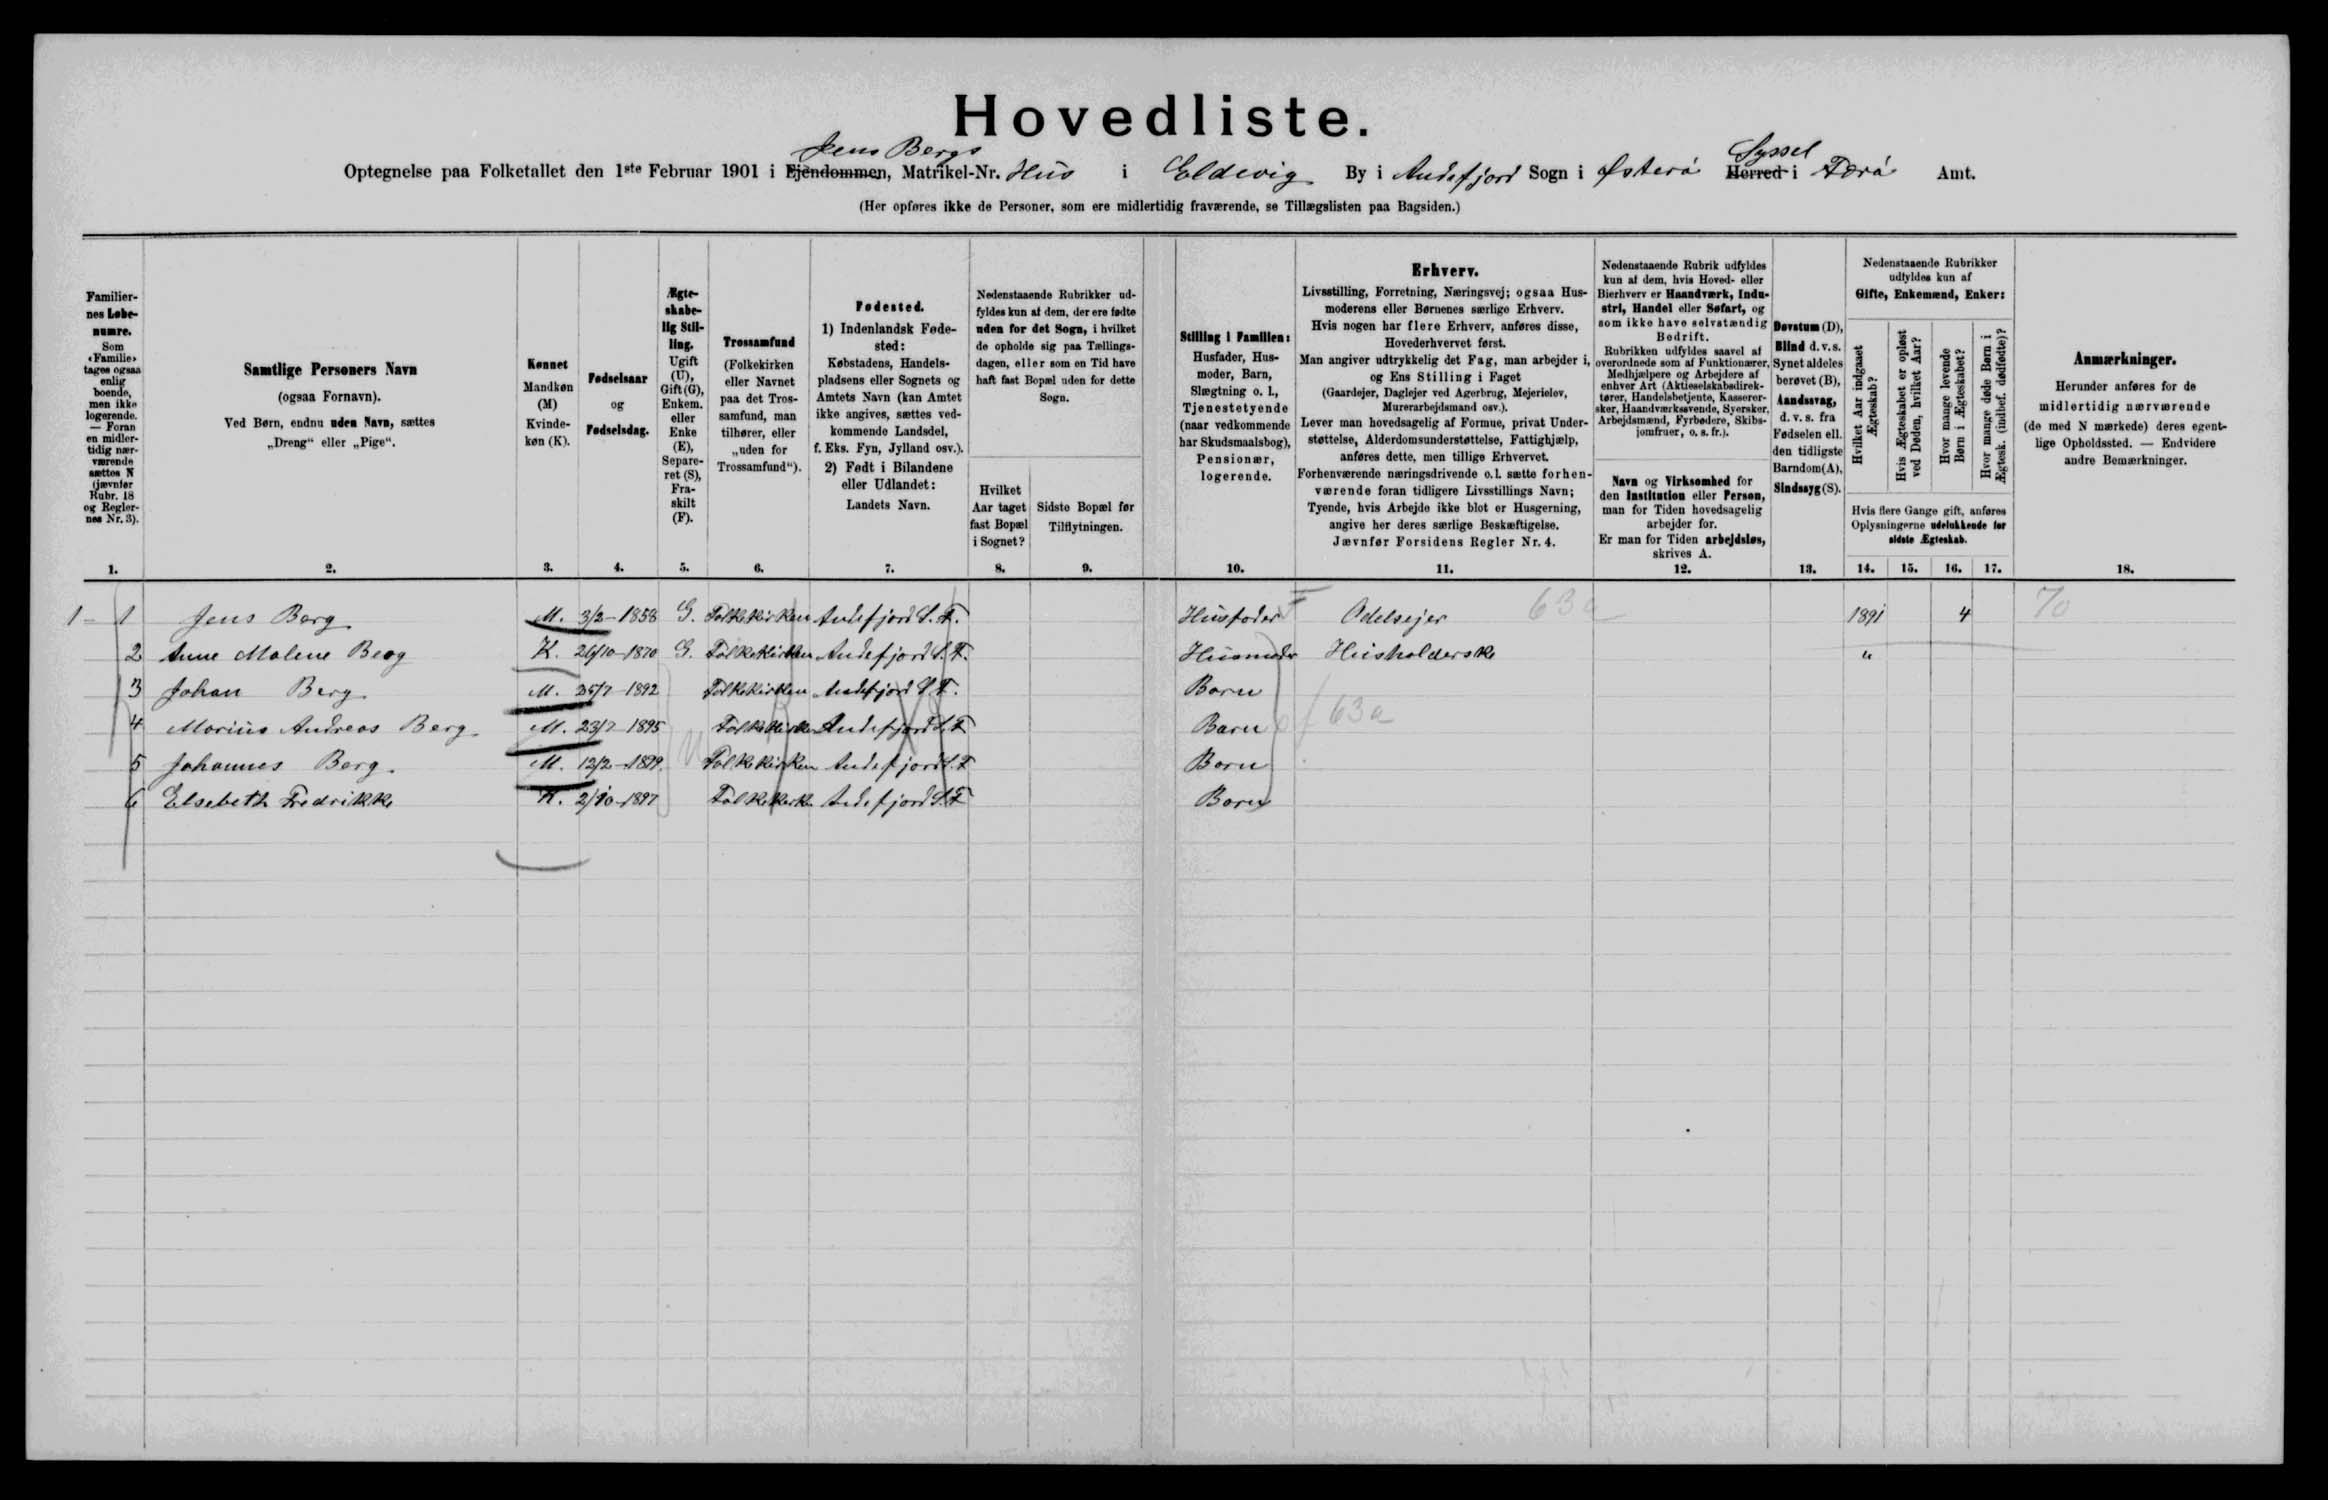 Hovedliste.
Jens Bergs Syssel
Optegnelse paa Folketallet den 1ste Februar 1901 i Ejendommen, Matrikel-Nr. Hus i Eldevig By i Andefjord Sogn i Østerö Herred i Færö Amt.
(Her opføres ikke de Personer, som ere midlertidig fraværende, se Tillægslisten paa Bagsiden.)
Familier-
nes Løbe-
numre.
Som
«Familie»
tages ogsaa
enlig
boende,
men ikke
logerende.
— Foran
en midler-
tidig nær-
værende
sættes N
(jævnfør
Rubr. 18
og Regler-
nes Nr. 3).
1.
Samtlige Personers Navn
(ogsaa Fornavn).
Ved Børn, endnu uden Navn, sættes
„Dreng“ eller „Pige“.
2.
Kønnet
Mandkøn
(M)
Kvinde-
køn (K).
3.
Fødselsaar
og
Fødselsdag.
4.
Ægte-
skabe-
lig Stil-
ling.
Ugift
(U),
Gift (G),
Enkem.
eller
Enke
(E),
Separe-
ret (S),
Fra-
skilt
(F).
5.
Trossamfund
(Folkekirken
eller Navnet
paa det Tros-
samfund, man
tilhører, eller
„uden for
Trossamfund“).
6.
Fødested.
1) Indenlandsk Føde-
sted:
Købstadens, Handels-
pladsens eller Sognets og
Amtets Navn (kan Amtet
ikke angives, sættes ved-
kommende Landsdel,
f. Eks. Fyn, Jylland osv.).
2) Født i Bilandene
eller Udlandet:
Landets Navn.
7.
Nedenstaaende Rubrikker ud-
fyldes kun af dem, der ere fødte
uden for det Sogn, i hvilket
de opholde sig paa Tællings-
dagen, eller som en Tid have
haft fast Bopæl uden for dette
Sogn.
Hvilket
Aar taget
fast Bopæl
i Sognet?
8.
Sidste Bopæl før
Tilflytningen.
9.
Stilling i Familien:
Husfader, Hus-
moder, Barn,
Slægtning o. l.,
Tjenestetyende
(naar vedkommende
har Skudsmaalsbog),
Pensionær,
logerende.
10.
Erhverv.
Livsstilling, Forretning, Næringsvej; ogsaa Hus-
moderens eller Børnenes særlige Erhverv.
Hvis nogen har flere Erhverv, anføres disse,
Hovederhvervet først.
Man angiver udtrykkelig det Fag, man arbejder i,
og Ens Stilling i Faget
(Gaardejer, Daglejer ved Agerbrug, Mejerielev,
Murerarbejdsmand osv.).
Lever man hovedsagelig af Formue, privat Under-
støttelse, Alderdomsunderstøttelse, Fattighjælp,
anføres dette, men tillige Erhvervet.
Forhenværende næringsdrivende o. l. sætte forhen-
værende foran tidligere Livsstillings Navn;
Tyende, hvis Arbejde ikke blot er Husgerning,
angive her deres særlige Beskæftigelse.
Jævnfør Forsidens Regler Nr. 4.
11.
Nedenstaaende Rubrik udfyldes
kun af dem, hvis Hoved- eller
Bierhverv er Haandværk, Indu-
stri, Handel eller Søfart, og
som ikke have selvstændig
Bedrift.
Rubrikken udfyldes saavel af
overordnede som af Funktionærer,
Medhjælpere og Arbejdere af
enhver Art (Aktieselskabsdirek-
tører, Handelsbetjente, Kasserer-
sker, Haandværkssvende, Syersker,
Arbejdsmænd, Fyrbødere, Skibs-
jomfruer, o. s. fr.).
Navn og Virksomhed for
den Institution eller Person,
man for Tiden hovedsagelig
arbejder for.
Er man for Tiden arbejdsløs,
skrives A.
12.
Døvstum (D),
Blind d. v. s.
Synet aldeles
berøvet (B),
Aandssvag,
d. v. s. fra
Fødselen ell.
den tidligste
Barndom (A),
Sindssyg (S).
13.
Nedenstaaende Rubrikker
udfyldes kun af
Gifte, Enkemænd, Enker:
Hvilket Aar indgaaet
Ægteskab?
Hvis Ægteskabet er opløst
ved Døden, hvilket Aar?
Hvor mange levende
Børn i Ægteskabet?
Hvor mange døde Børn i
Ægtesk. (indbef. dødfødte)?
Hvis flere Gange gift, anføres
Oplysningerne udelukkende for
sidste Ægteskab.
14. 15. 16. 17.
Anmærkninger.
Herunder anføres for de
midlertidig nærværende
(de med N mærkede) deres egent-
lige Opholdssted. — Endvidere
andre Bemærkninger.
18.
1 - 1 Jens Berg M. 3/2-1858 G. Folkekirken Andefjord S. F. Husfader Odelsejer 63a 1891 4 70
2 Anne Malene Berg K. 26/10-1870 G. Folkekirken Andefjord S. F. Husmoder Husholderske "
3 Johan Berg M. 25/7-1892 Folkekirken Andefjord S. F. Barn
4 Marius Andreas Berg M. 23/7-1895 U Folkekirken Andefjord S. F Barn f 63a
5 Johannes Berg. M. 12/2-1899. Folkekirken Andefjord S. F Barn
6 Elsebeth Fredrikke K. 2/10-1897 Folkekirk. Andefjord S. F Barn